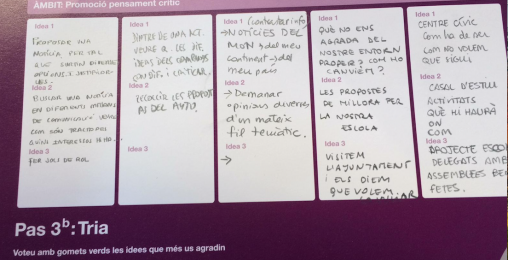 ÀMBIT: Promoció pensament crític
Idea 1
PROPOSAR UNA
NOTÍCIA PER TAL
QUE SURTIN DIFERENTS
OPINIONS I
Idea 2
BUSCAR UNA NOTÍCIA
EN DIFERENTS MITJANS
DE COMUNICACIÓ VEURE
COM SÓN TRACTADES
QUINS INTERESSOS HI HA
Idea 3
FER JOCS DE ROL
Idea 1
VEURE Q. LES DIF.
IDEES DELS COMPANYS
Idea 2
RECOLLIR LES PROPOST
AS DEL
Idea 3
Idea 1 (contrastar info)
→ NOTÍCIES DEL
MÓN → del meu
continent → del
meu país
Idea 2
→ Demanar
opinions diverses
d'un mateix
fil temàtic.
Idea 3
→
Idea 1
QUÈ NO ENS
AGRADA DEL
NOSTRE ENTORN
PROPER? COM HO
CANVIEM?
Idea 2
LES PROPOSTES
DE MILLORA PER
LA NOSTRA
ESCOLA
Idea 3
VISITEM
L'AJUNTAMENT
I ELS DIEM
QUE VOLEM
Idea 1
CENTRE CÍVIC
Com ha de ser
Com NO VOLEM
QUE SIGUI
Idea 2
CASAL D'ESTIU
ACTIVITATS
QUÈ HI HAURÀ
ON
COM
Idea 3
PROJECTE ESCO
DELEGATS AMB
ASSEMBLEES BEN
FETES.
Pas 3b: Tria
Voteu amb gomets verds les idees que més us agradin